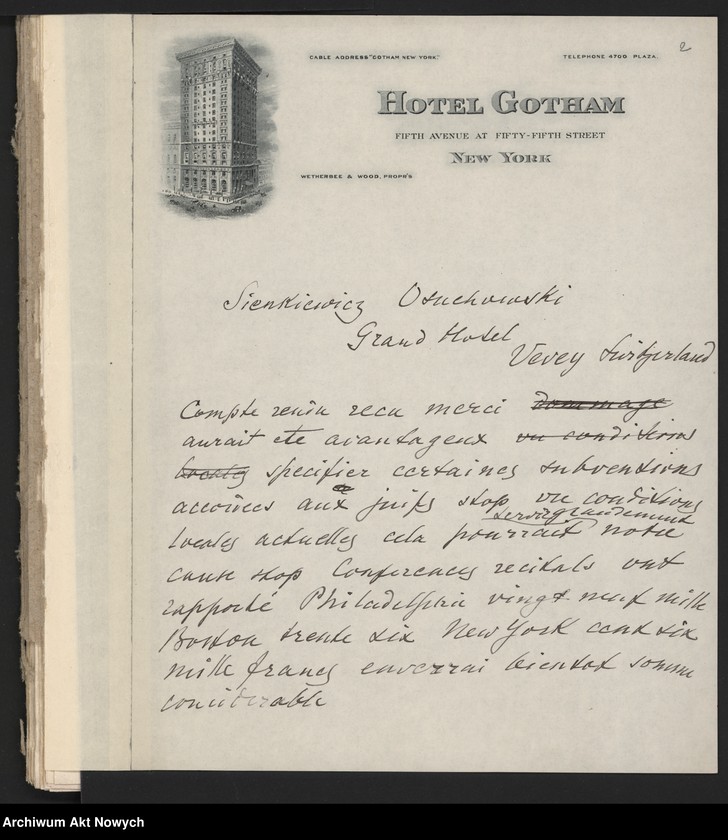 2
CABLE ADDRESS "GOTHAM NEW YORK."
TELEPHONE 4700 PLAZA.
HOTEL GOTHAM
FIFTH AVENUE AT FIFTY-FIFTH STREET
NEW YORK
WETHERBEE & WOOD, PROPR'S
Sienkiewicz Osuchowski
Grand Hotel
Vevey Switzerland
Compte rendu recu merci dommage
aurait ete avantageux vu conditions
locales specifier certaines subventions
accordées aux juifs stop vu conditions
servir grandement
locales actuelles cela pourrait notre
cause stop Conferences recitals ont
rapporté Philadelphie vingt neuf mille
Boston trente six New York cent six
mille francs enverrai bientot somme
considerable
Archiwum Akt Nowych